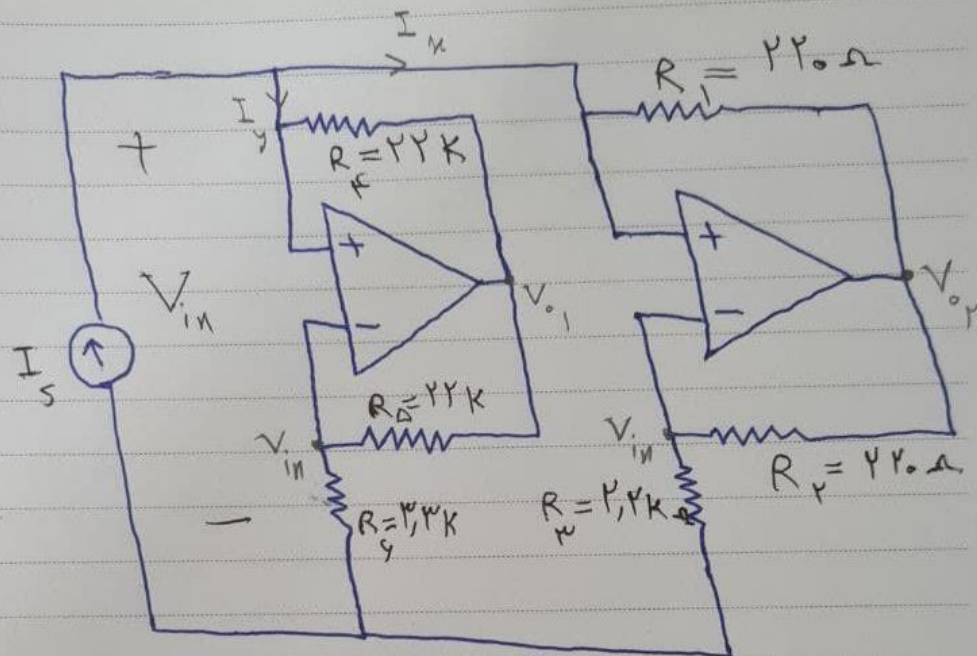 I_x
R_۱ = ۲۲۰ Ω
I_y
R_۴ = ۲۲ K
+
+
+
V_in
V_o۱
V_o۲
I_s
−
−
R_۵ = ۲۲ K
V_in
V_in
R_۲ = ۲۲۰ Ω
−
R_۶ = ۳,۳ K
R_۳ = ۲,۲ K Ω